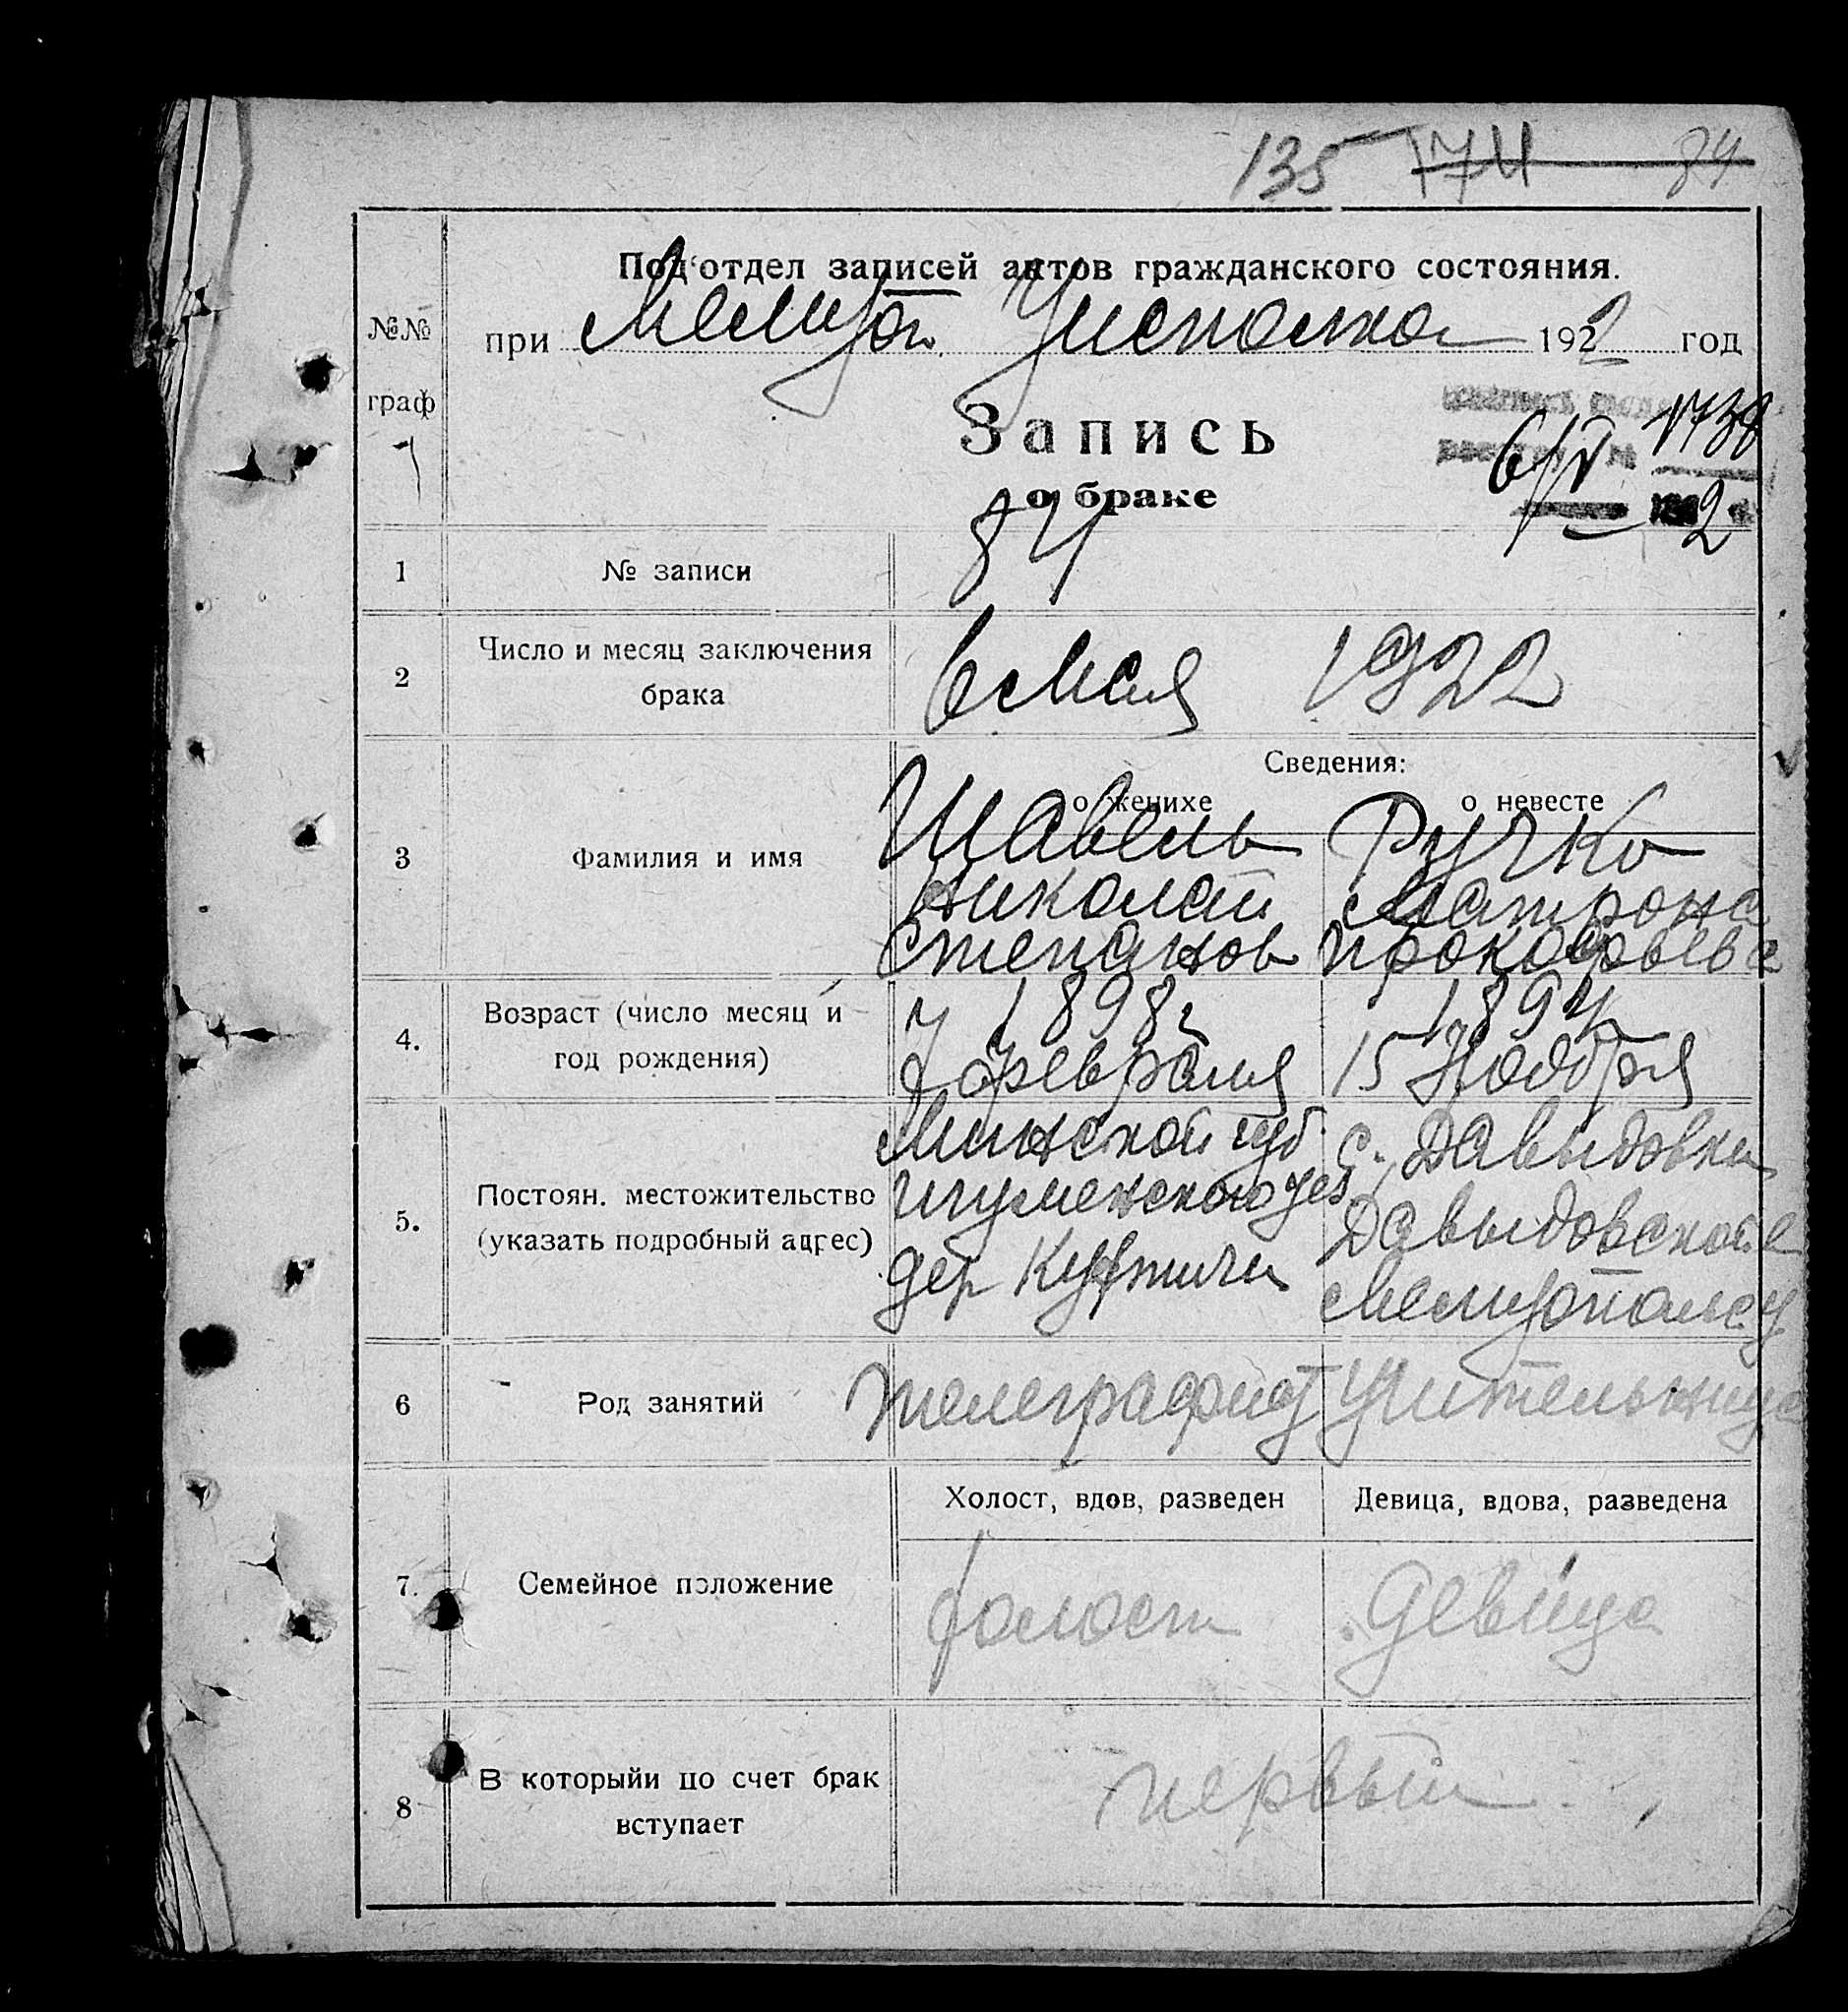 135 174 84
Под‘отдел записей актов гражданского состояния.
№№ граф
при Мелитоп. Уисполкома 1922 год
Запись
о браке
6/V 1738
1922
1 № записи 84
2 Число и месяц заключения брака 6 Мая 1922
Сведения:
о женихе о невесте
3 Фамилия и имя
Шавель Ручко
Николай Матрона
Степанов Прокофьева
4. Возраст (число месяц и год рождения)
1898 г 1894
февраля 15 Ноября
5. Постоян. местожительство (указать подробный адрес)
Минской губ с. Давыдовки
Игуменского уез Давыдовской в
дер Мелитопол. у
6 Род занятий телеграфист Учительница
Холост, вдов, разведен Девица, вдова, разведена
7. Семейное положение холост девица
8 В которыйи по счет брак вступает первый